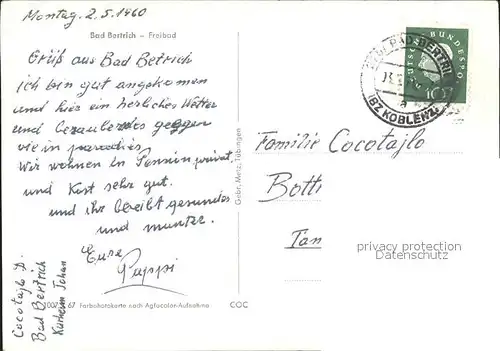 Montag. 2.5.1960
Bad Bertrich – Freibad
Grüß aus Bad Betrich
ich bin gut angekomen
und hier ein herliches Wetter
und
wie in paradies
Wir wohnen in Pension privat
und Kost sehr gut.
und ihr bleibt gesundes
und munter.
Eure
Familie Cocotajlo
Bott
Tan
Cocotajlo D.
Bad Bertrich
Kurheim Johan
Gebr. Metz, Tübingen
DEUTSCHE BUNDESPOST
10
BAD BERTRI
(BZ KOBLENZ)
a
67 Farbafotokarte nach Agfacolor-Aufnahme
COC
privacy protection
Datenschutz